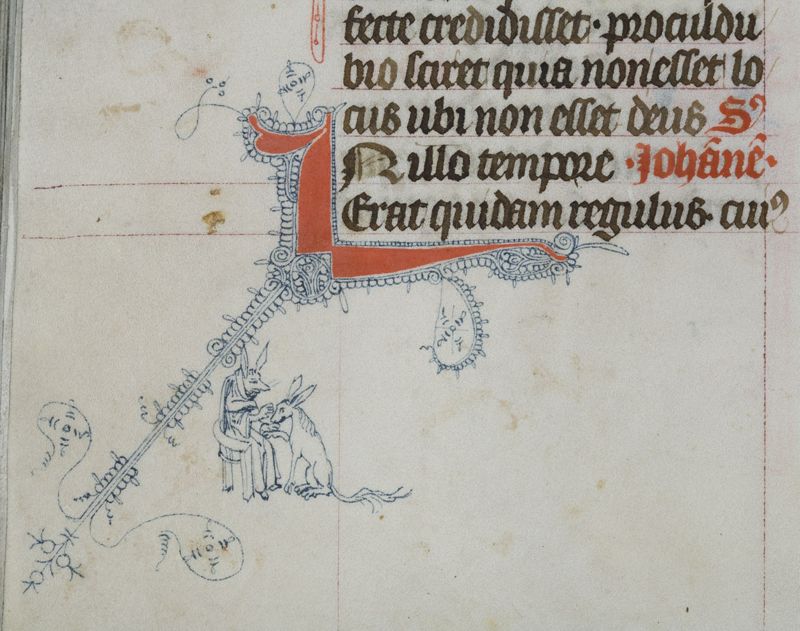 fecte credidisset · proculdu
bio sciret quia non esset lo
cus ubi non esset deus Sꝰ
IN illo tempore · Johān̄e ·
Erat quidam regulus · cuiꝰ